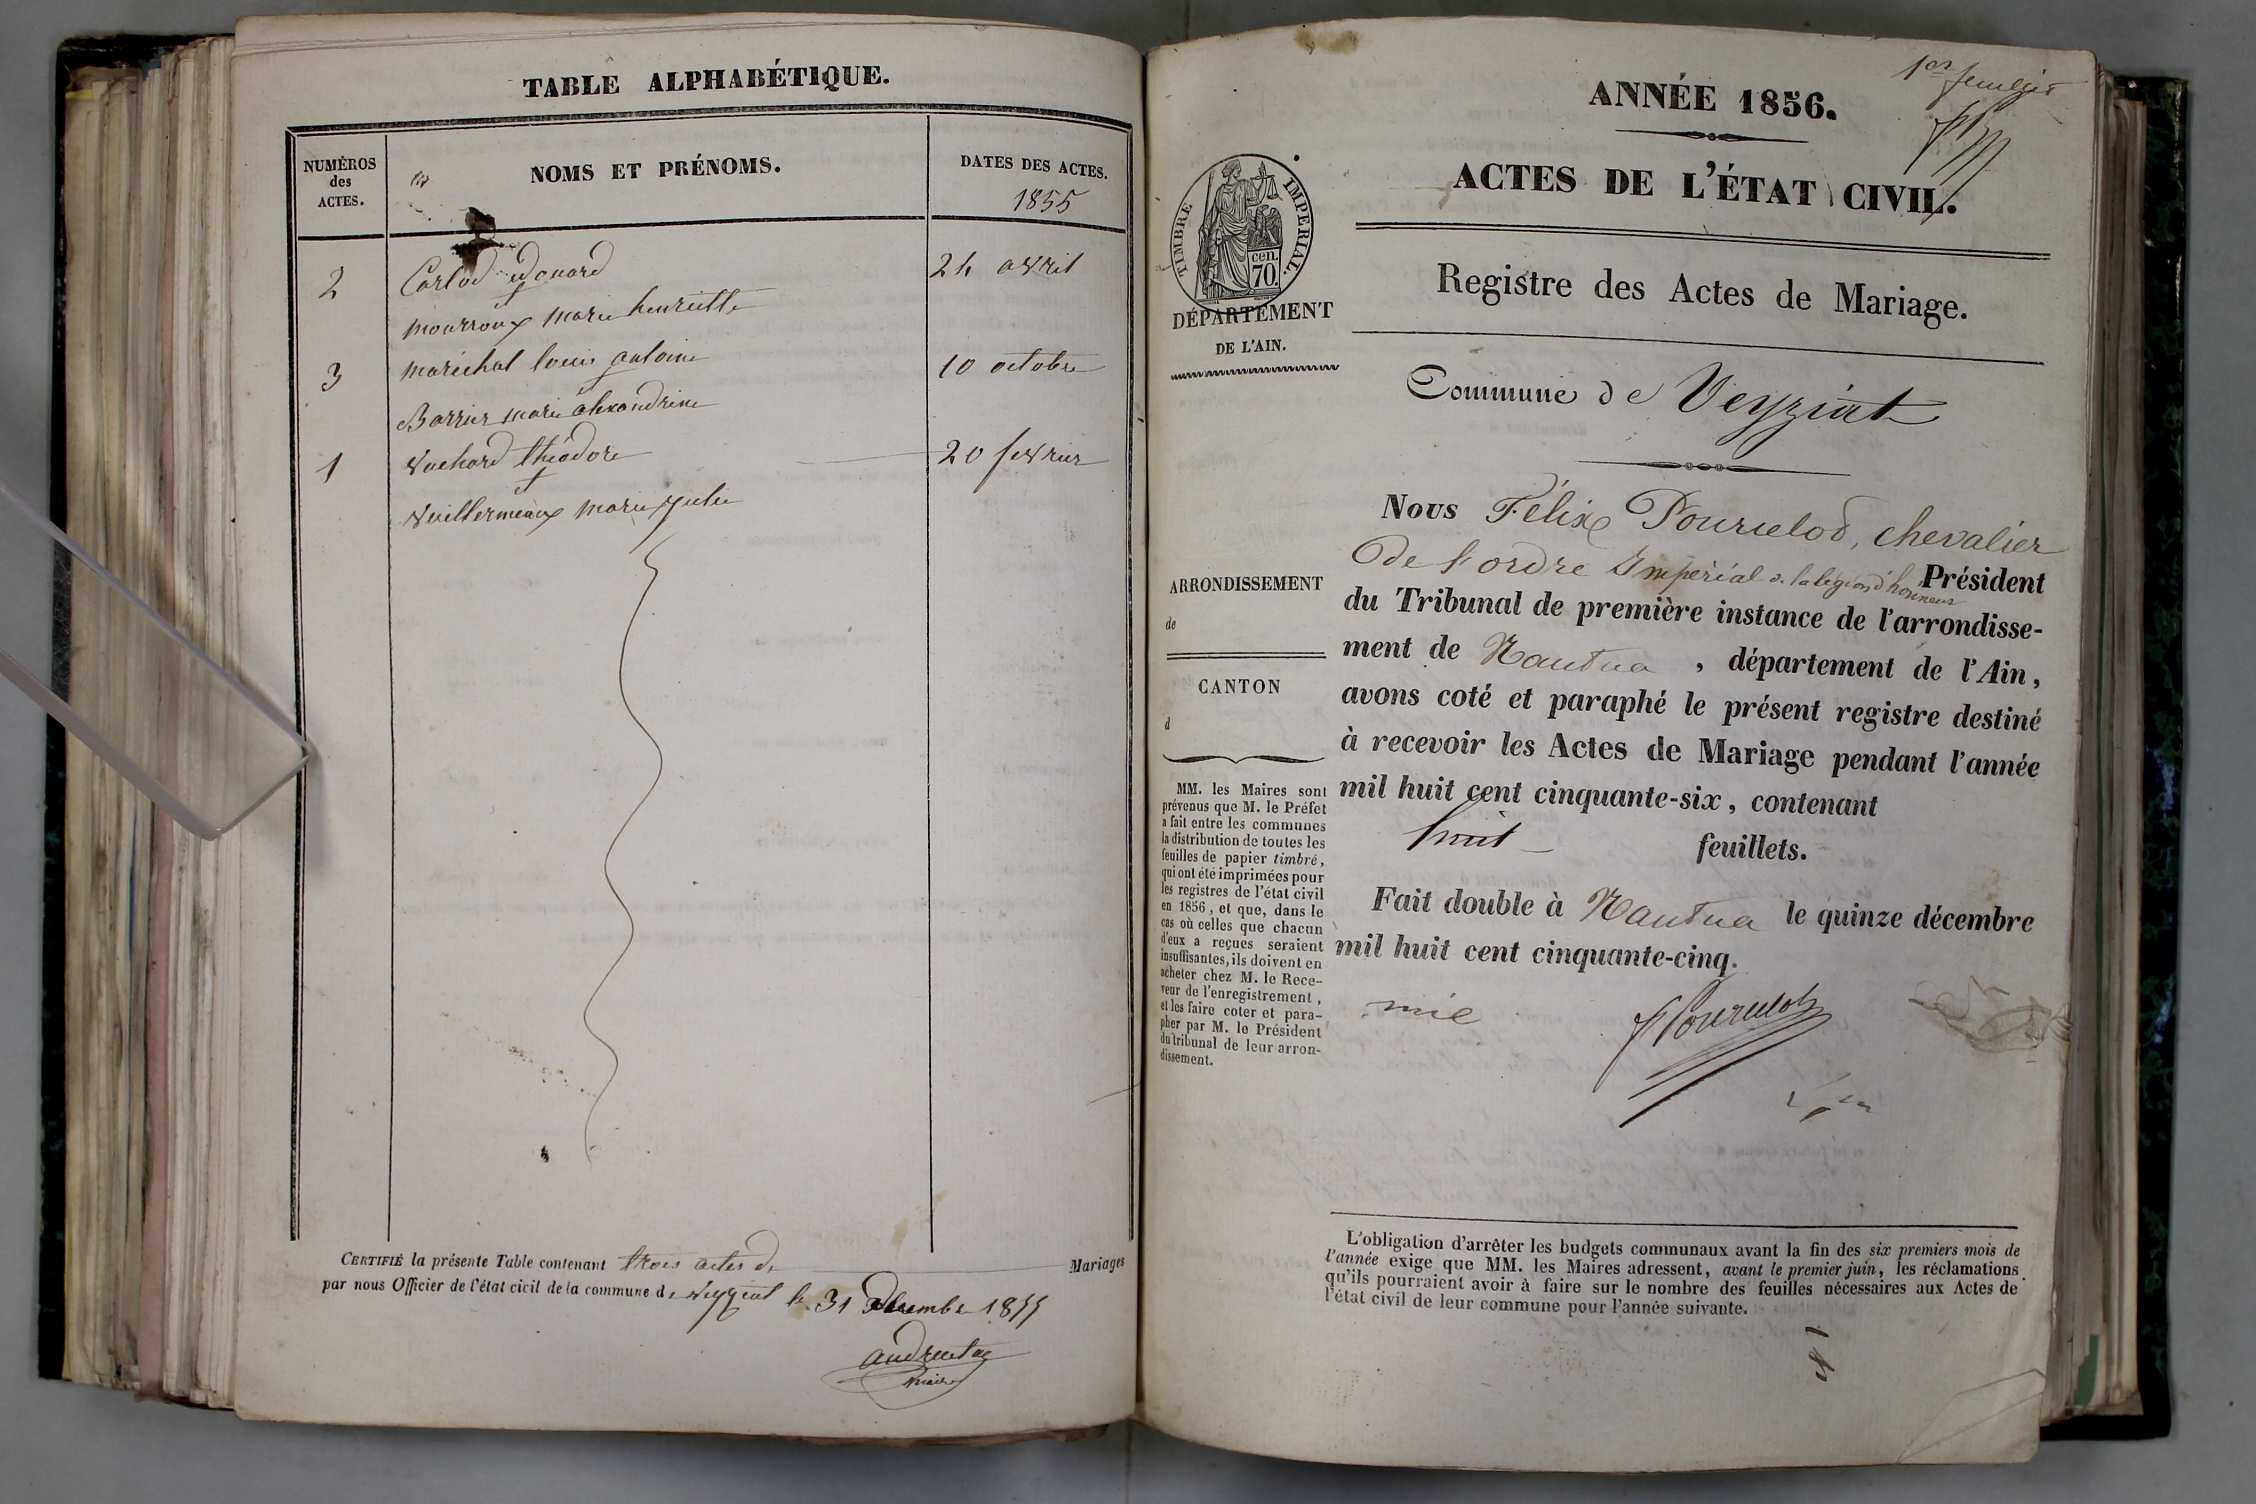 TABLE ALPHABÉTIQUE.
NUMÉROS
des
ACTES.
NOMS ET PRÉNOMS.
DATES DES ACTES.
1855
2 Carlod édouard 24 avril
et
mourroux marie henriette
3 maréchal louis antoine 10 octobre
et
Barrier marie alexandrine
1 vuchard théodore 20 fevrier
et
vuillermeaux marie julie
CERTIFIÉ la présente Table contenant trois actes de Mariages
par nous Officier de l'état civil de la commune de veyziat le 31 Décembre 1855
maire
1er feuillet
ANNÉE 1856.
ACTES DE L'ÉTAT CIVIL.
TIMBRE IMPERIAL.
cen.
70.
DÉPARTEMENT
DE L'AIN.
Registre des Actes de Mariage.
Commune de Veyziat
ARRONDISSEMENT
de
CANTON
d
MM. les Maires sont
prévenus que M. le Préfet
a fait entre les communes
la distribution de toutes les
feuilles de papier timbré,
qui ont été imprimées pour
les registres de l'état civil
en 1856, et que, dans le
cas où celles que chacun
d'eux a reçues seraient
insuffisantes, ils doivent en
acheter chez M. le Rece-
veur de l'enregistrement,
et les faire coter et para-
pher par M. le Président
du tribunal de leur arron-
dissement.
Nous Félix Pourcelod, chevalier
De l'ordre Impérial d. la légion d'honneur Président
du Tribunal de première instance de l'arrondisse-
ment de Nantua, département de l'Ain,
avons coté et paraphé le présent registre destiné
à recevoir les Actes de Mariage pendant l'année
mil huit cent cinquante-six, contenant
huit feuillets.
Fait double à Nantua le quinze décembre
mil huit cent cinquante-cinq.
L'obligation d'arrêter les budgets communaux avant la fin des six premiers mois de
l'année exige que MM. les Maires adressent, avant le premier juin, les réclamations
qu'ils pourraient avoir à faire sur le nombre des feuilles nécessaires aux Actes de
l'état civil de leur commune pour l'année suivante.